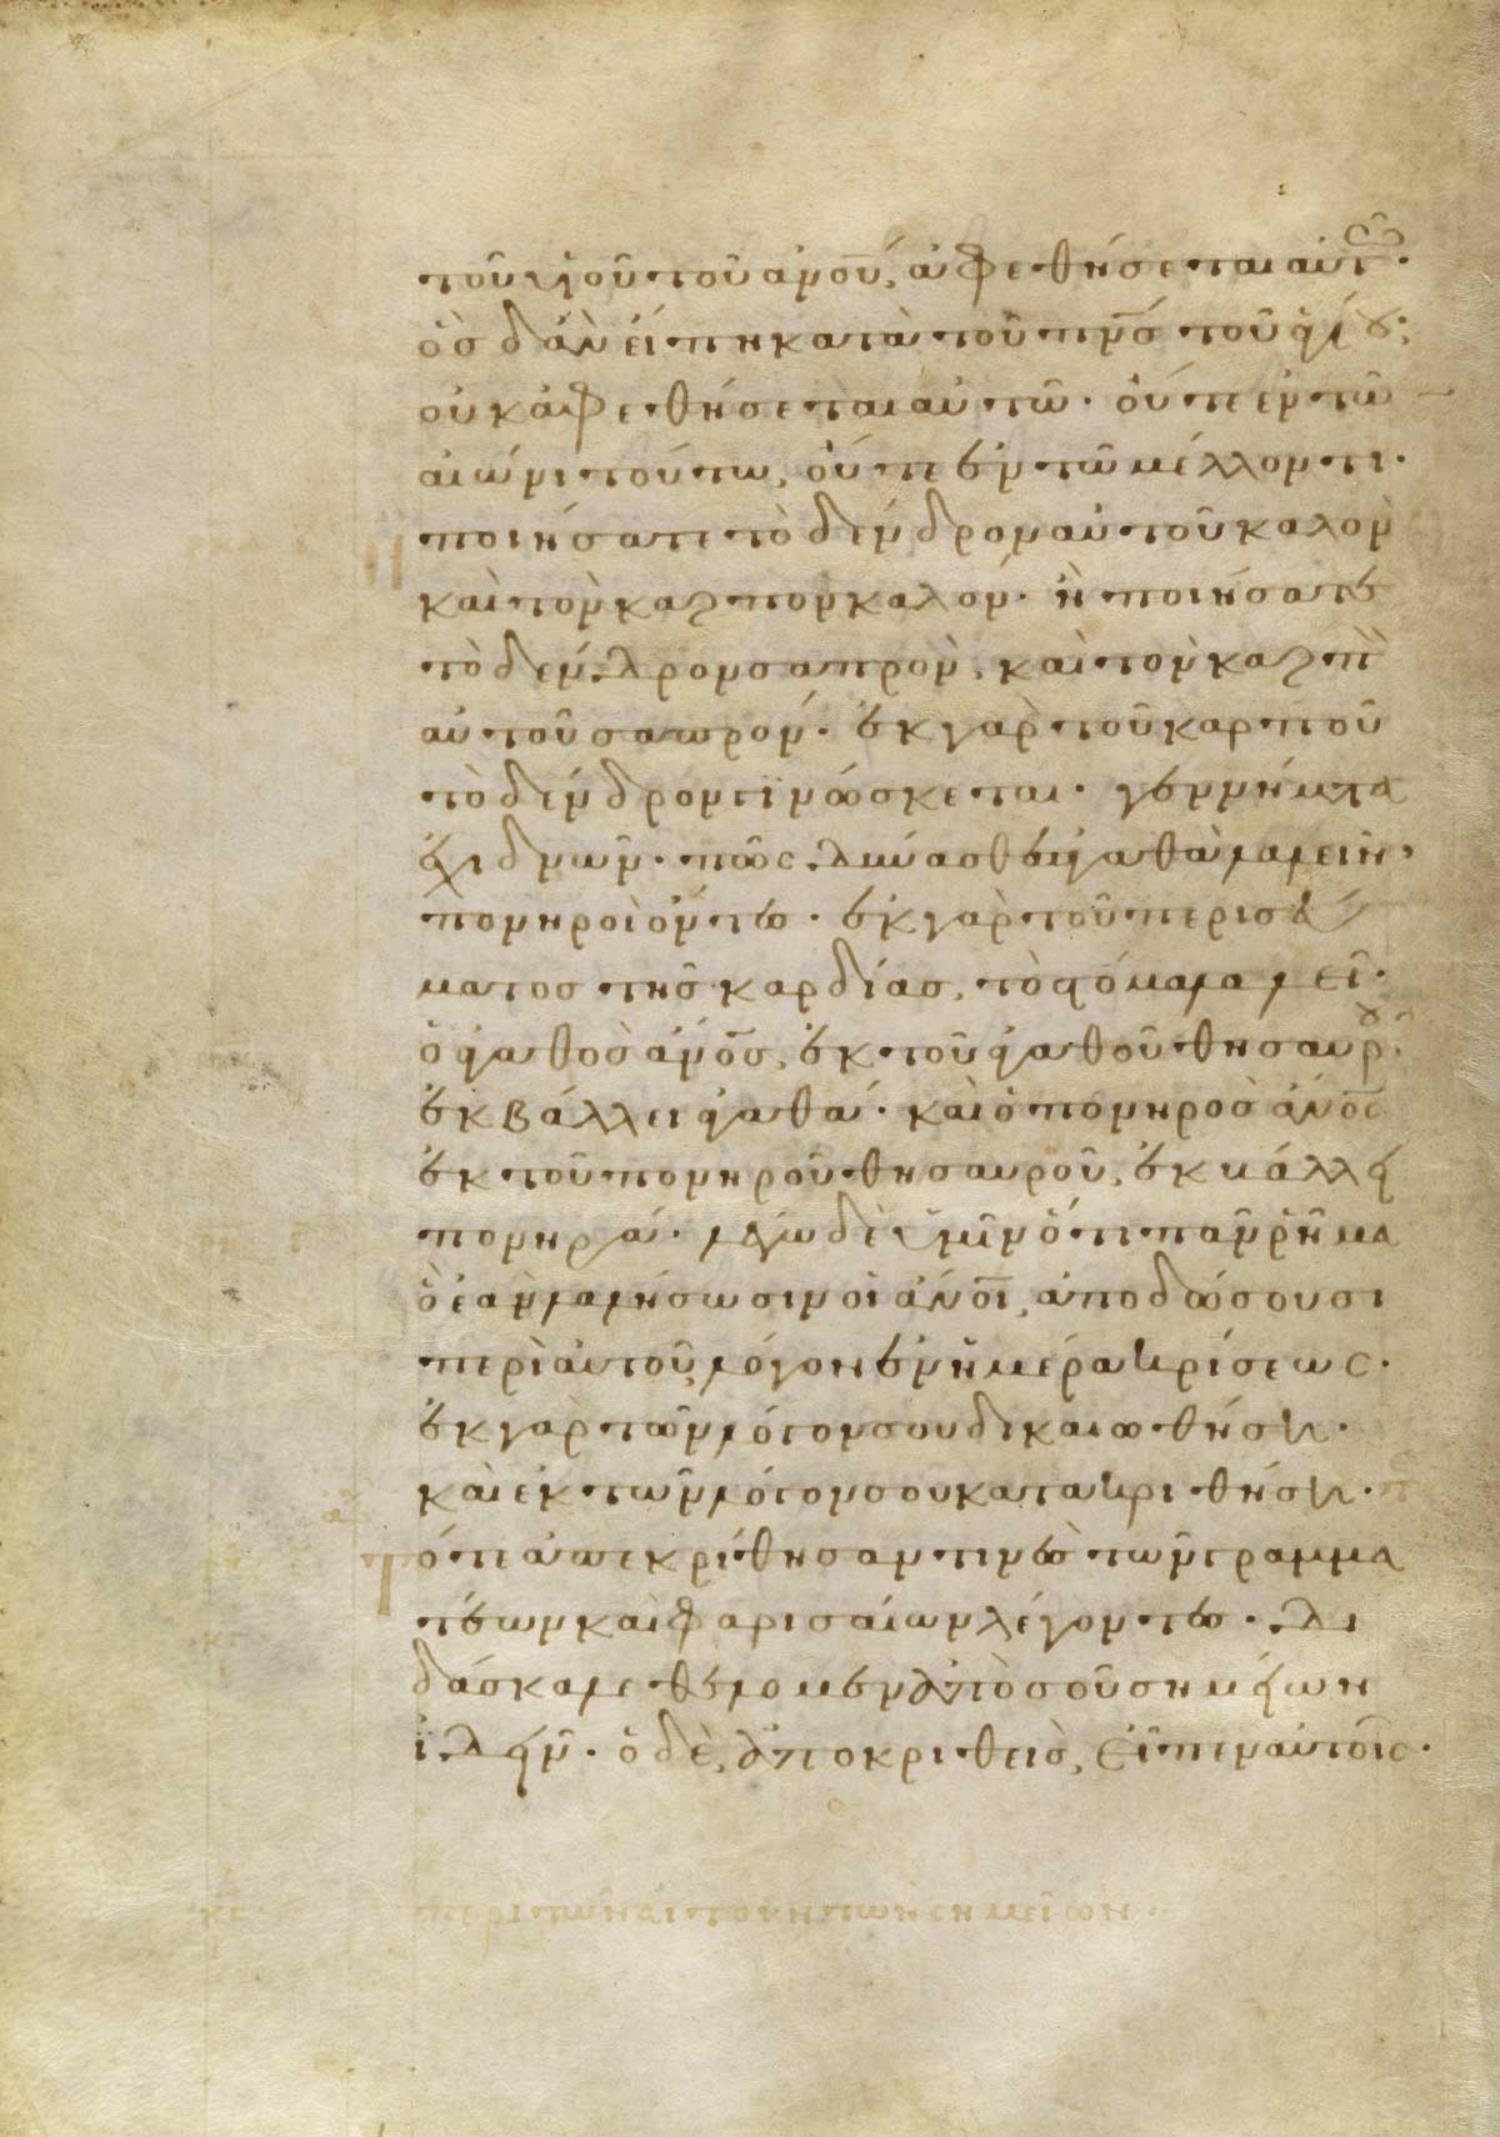 τοῦ υἱοῦ τοῦ ἀνου, ἀφεθήσεται αὐτῶ·
ὃσ δἂν εἴπη κατὰ τοῦ πνσ τοῦ ἁγίου·
οὐκ ἀφεθήσεται αὐτῶ· οὔτε ἐν τῶ
αἰῶνι τούτω, οὔτε ἐν τῶ μέλλοντι·
ποιήσατε τὸ δένδρον αὐτοῦ καλὸν
καὶ τὸν καρπὸν καλόν· ἢ ποιήσατε
τὸ δένδρον σαπρὸν, καὶ τὸν καρπὸ
αὐτοῦ σαπρόν· ἐκ γὰρ τοῦ καρποῦ
τὸ δένδρον γϊνώσκεται· γεννήματα
ἐχιδνῶν· πῶς δύνασθε ἀγαθὰ λαλεῖν,
πονηροὶ ὄντεσ· ἐκ γὰρ τοῦ περισσεύ
ματοσ τῆσ καρδίασ, τὸ στόμα λαλεῖ·
ὁ ἀγαθὸσ ἀνοσ, ἐκ τοῦ ἀγαθοῦ θησαυροῦ·
ἐκβάλλει ἀγαθά· καὶ ὁ πονηρὸσ ἀνος
ἐκ τοῦ πονηροῦ θησαυροῦ, ἐκβάλλει
πονηρά· λέγω δὲ ὑμῖν ὅτι πᾶν ῥῆμα
ὃ ἐὰν λαλήσωσιν οἱ ἀνοι, ἀποδώσουσι
περὶ αὐτοῦ λόγον ἐν ἡμέρα κρίσεως·
ἐκ γὰρ τῶν λόγον σου δικαιωθήση·
καὶ ἐκ τῶν λόγον σου κατακριθήση·
Τότε ἀπεκρίθησαν τινὲσ τῶν γραμμα
τέων καὶ φαρισαίων λέγοντεσ· δι
δάσκαλε θέλομεν ἀπὸ σοῦ σημεῖων
ἰδεῖν· ὁ δὲ, ἀποκριθεὶσ, εἶπεν αὐτοῖς·